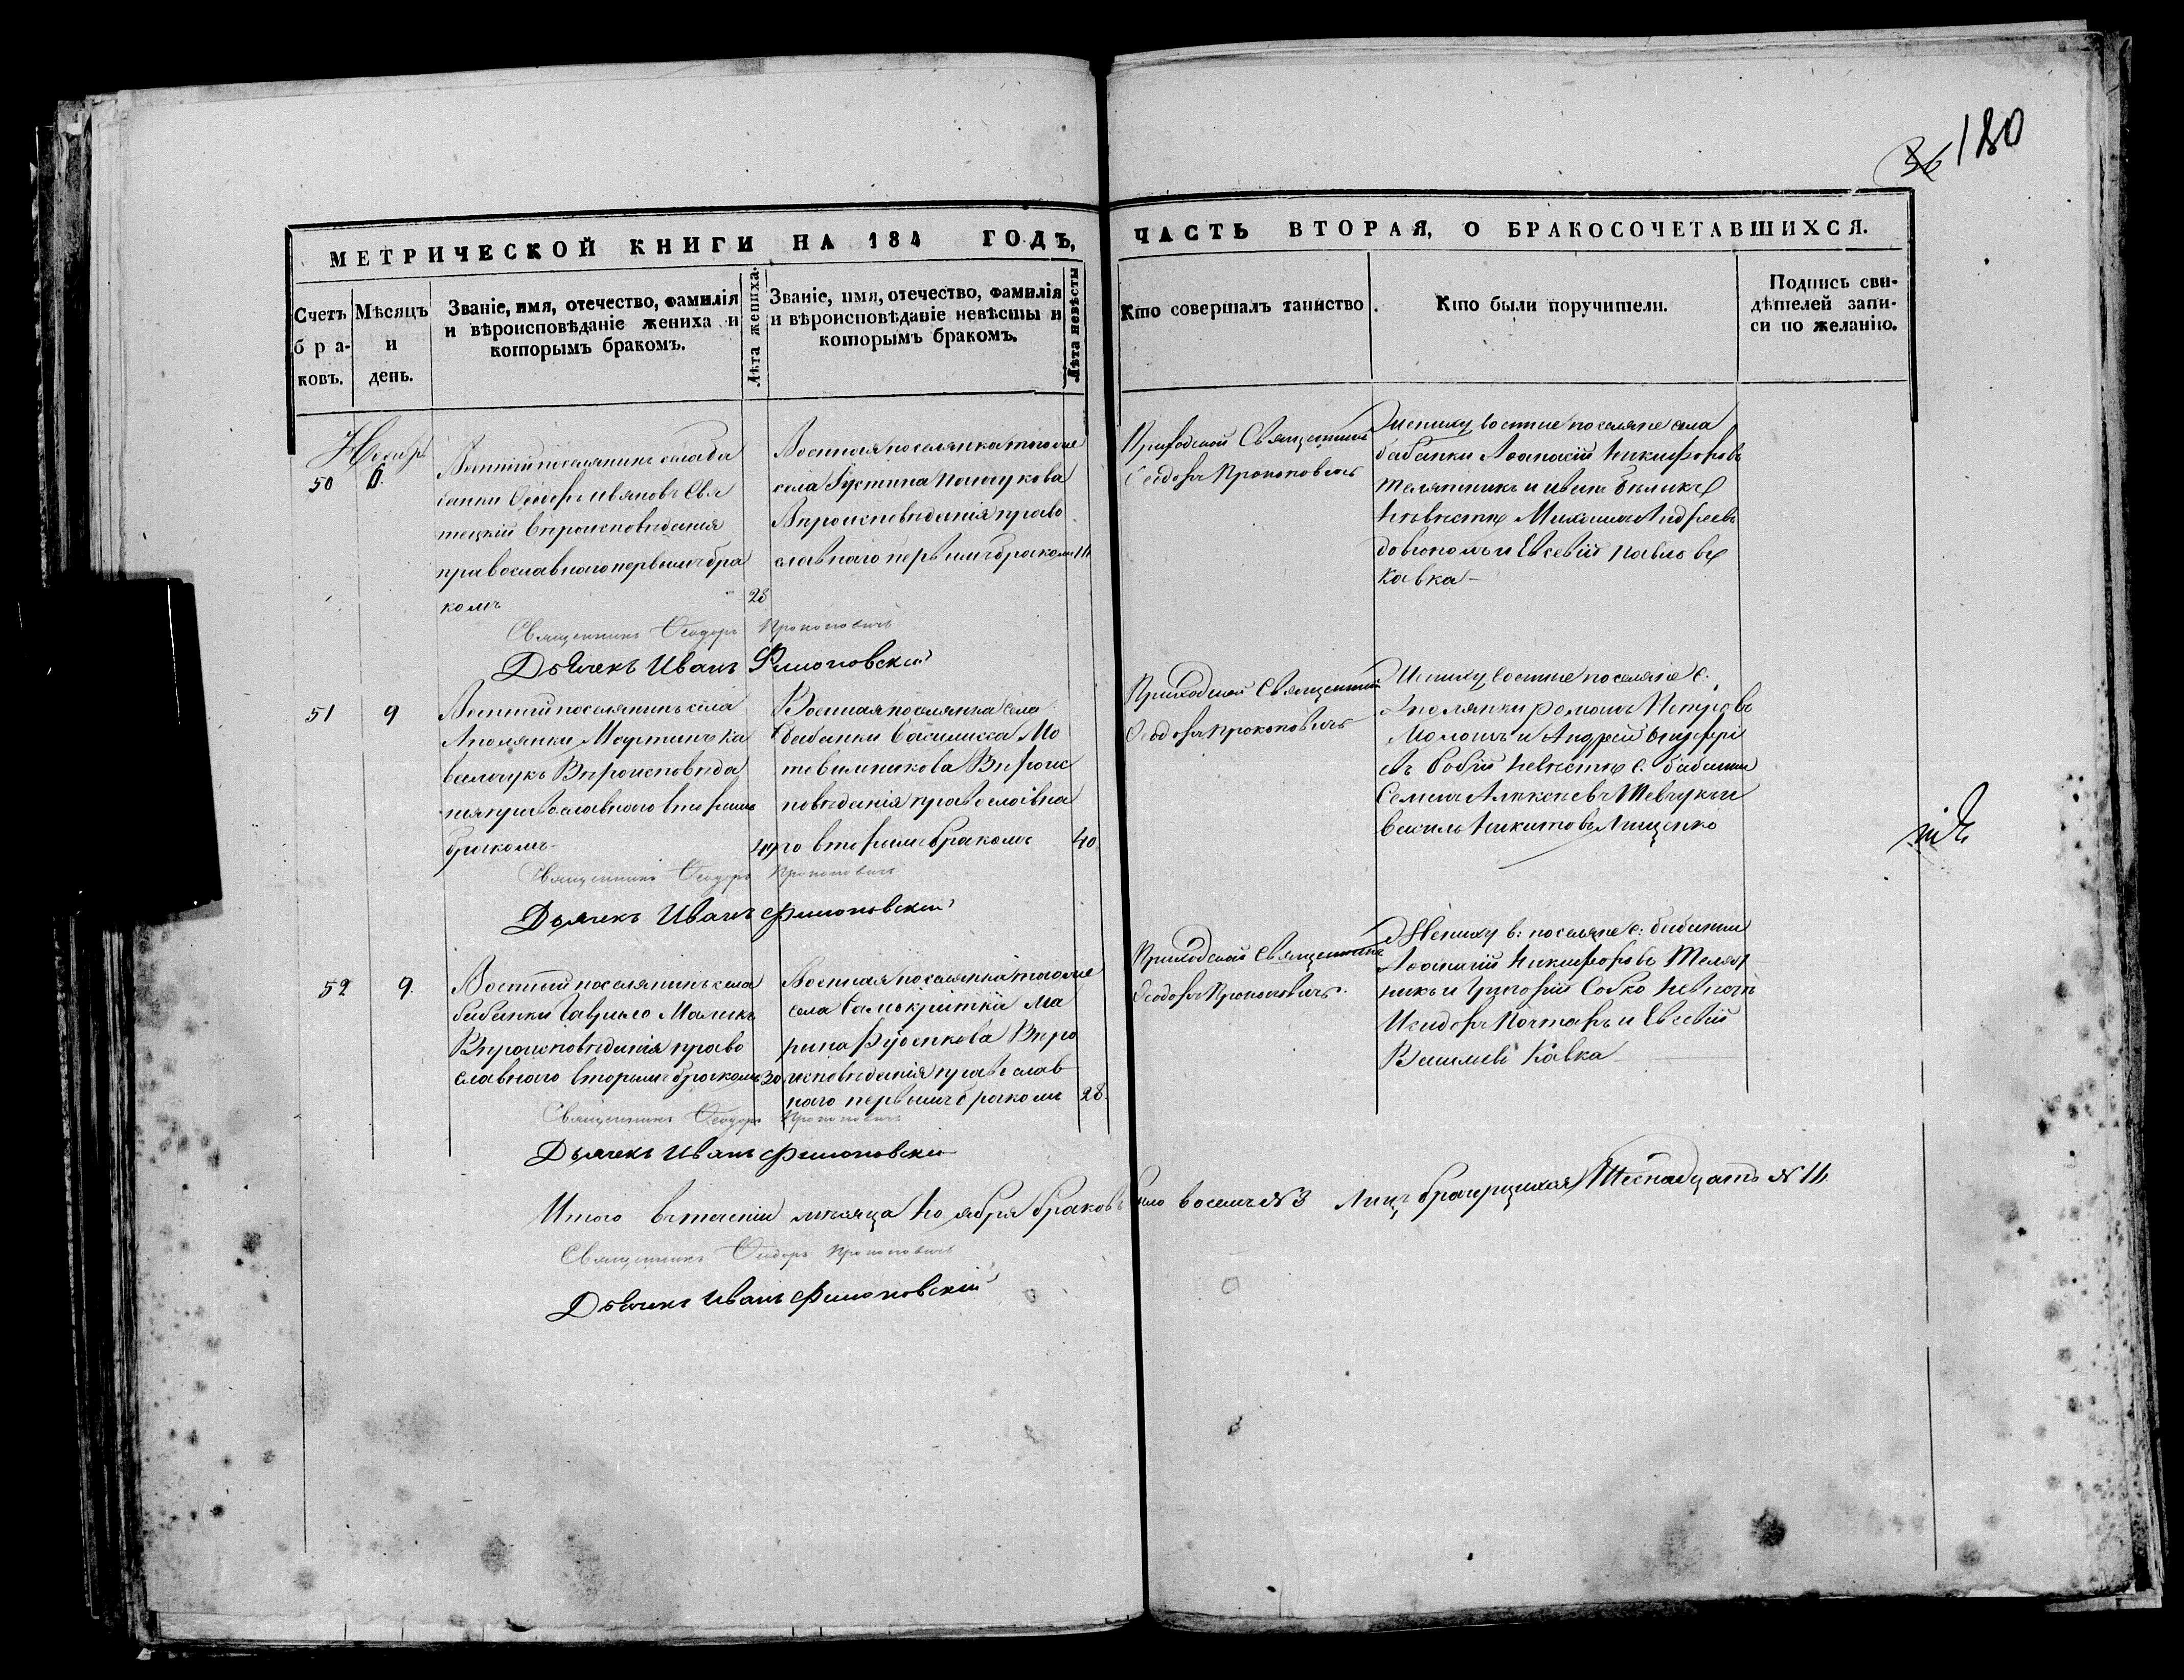 36 180
МЕТРИЧЕСКОЙ КНИГИ НА 184 ГОДЪ, ЧАСТЬ ВТОРАЯ, О БРАКОСОЧЕТАВШИХСЯ.
Счетъ бра-ковъ.
Мѣсяцъ и день.
Званіе, имя, отечество, фамилія
и вѣроисповѣданіе жениха и
которымъ бракомъ.
Лѣта жениха.
Званіе, имя, отечество, фамилія
и вѣроисповѣданіе невѣсты и
которымъ бракомъ.
Лѣта невѣсты
Кто совершалъ таинство
Кто были поручители.
Подпись сви-
дѣтелей запи-
си по желанію.
Ноябр
50 6.
Военный поселянинъ села Ба
банки Ѳеодоръ Ивановъ Свя
тецкій Вѣроисповѣданія
православнаго первымъ бра
комъ
28
Военная поселянка тогоже
села Густина
Вѣроисповѣданія право
славнаго первымъ бракомъ
Приходской Священникъ
Ѳеодоръ Прокоповичъ
Жениху военные поселяне села
бабанки Аѳанасій Никифоровъ
Телятникъ и Иванъ Бѣликъ
Невѣсте Михаилъ Андреевъ
и Евсевій Павловъ
Кавка
Священникъ Ѳеодоръ Прокоповичъ
Дьячекъ Иванъ Филоновскій
51 9
Военный поселянинъ села
Аполянки Мартинъ Ка
вальчукъ Вѣроисповѣда
нія православнаго вторымъ
бракомъ
Военная поселянка села
Бабанки Василисса Мо
товильникова Вѣроис
повѣданія православна
го вторымъ бракомъ
40.
Приходской Священникъ
Ѳеодоръ Прокоповичъ
Жениху военные поселяне с.
Аполянки Романъ Петровъ
и Андрей Онуфрі
евъ Бабій Невѣсте с. бабанки
Семенъ Алексѣевъ Шевчукъ и
Василь Никитовъ Лищенко
Священникъ Ѳеодоръ Прокоповичъ
Дьячекъ Иванъ Филоновскій
52 9.
Военный поселянинъ села
бабанки Гаврило Маликъ
Вѣроисповѣданія право
славнаго вторымъ бракомъ
30
Военная поселянка тогоже
села Ма
рина Вѣро
исповѣданія православ
наго первымъ бракомъ
28.
Приходской Священникъ
Ѳеодоръ Прокоповичъ
Жениху в: поселяне с: бабанки
Аѳанасій Никифоровъ Телят
никъ и Григорій Собко Невѣстѣ
Исидоръ Почтаръ и Евсевій
Василевъ Кавка
Священникъ Ѳеодоръ Прокоповичъ
Дьячекъ Иванъ Филоновскій
Итого втеченіи мѣсяца Ноября браковъ было восемъ № Лицъ Шеснадцать №
Священникъ Ѳеодоръ Прокоповичъ
Дьячекъ Иванъ Филоновскій